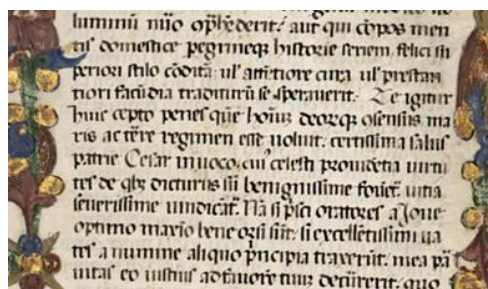 luminū nūo op̄hēderit: aut qui cōpos men
tis domestice pegrineqꝫ historie seriem felici su
periori stilo cōditā: ul' attētiore cura ul' prestan
tiori facūdia traditurū se speraverit. Te igitur
huic cepto penes quē hoīuꝫ deorqꝫ ōsensus ma
ris ac tērre regimen esse voluit, certissima salus
patrie Cesar invoco, cui' celesti providētia virtu
tes de qbꝫ dicturus sū benignissime fovēt. vitia
severissime vindicāt. Nā si p̄sci oratores a Jove
optimo maxīo bene orsi sūt: si excellētissimi va
tes a numine aliquo p̄ncipia traxerūt. mea p̄
vitas eo iustius ad favorē tuuꝫ decūrerit. quo